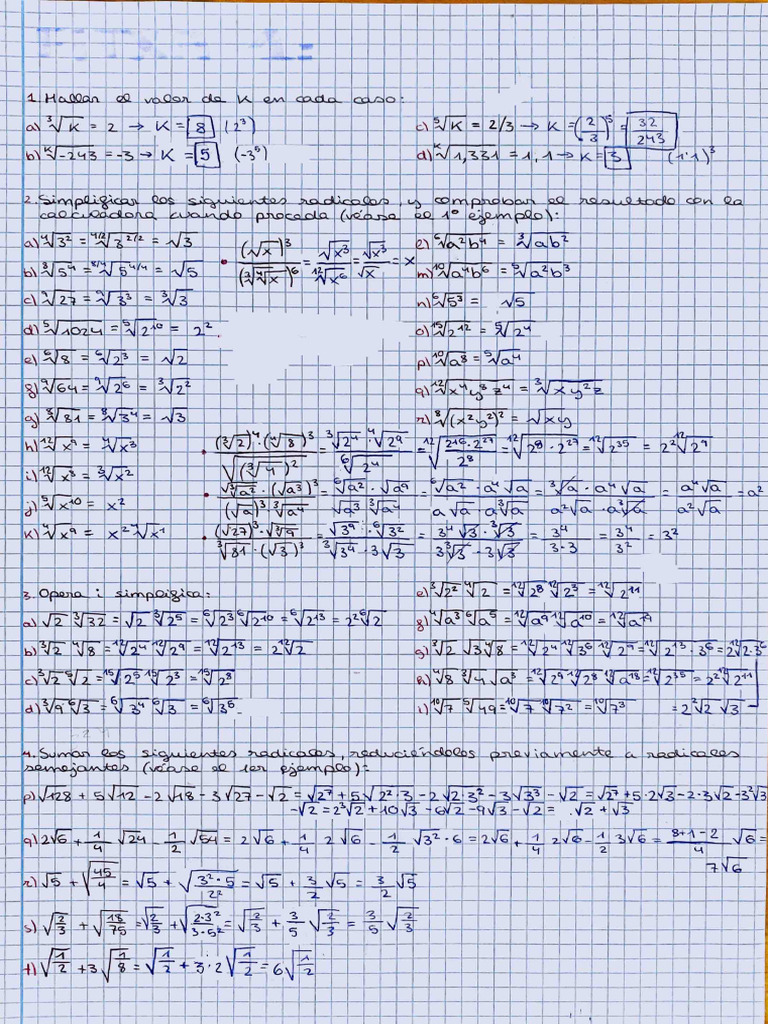 1. Hallar el valor de K en cada caso:
a) ∛K = 2 → K = 8 (2³)
c) ⁵√K = 2/3 → K = (2/3)⁵ = 32/243
b) ᴷ√-243 = -3 → K = 5 (-3⁵)
d) ᴷ√1,331 = 1,1 → K = 3 (1'1)³
2. Simplificar los siguientes radicales, y comprobar el resultado con la
calculadora cuando proceda (véase el 1º ejemplo):
a) ⁴√3² = ⁴ᐟ²√3^(2/2) = √3
b) ⁸√5⁴ = ⁸ᐟ⁴√5^(4/4) = √5
c) ⁹√27 = ⁹√3³ = ∛3
d) ⁵√1024 = ⁵√2¹⁰ = 2²
e) ⁶√8 = ⁶√2³ = √2
f) ⁹√64 = ⁹√2⁶ = ∛2²
g) ⁸√81 = ⁸√3⁴ = √3
h) ¹²√x⁹ = ⁴√x³
i) ¹²√x³ = ∛x²
j) ⁵√x¹⁰ = x²
k) ⁴√x⁹ = x² ⁴√x¹
• (√x)³/(∛⁴√x)⁶ = √x³/¹²√x⁶ = √x³/√x = x
l) ⁶√a²b⁴ = ∛ab²
m) ¹⁰√a⁴b⁶ = ⁵√a²b³
n) ⁶√5³ = √5
o) ¹⁵√2¹² = ⁵√2⁴
p) ¹⁰√a⁸ = ⁵√a⁴
q) ¹²√x⁴y⁸z⁴ = ∛xy²z
r) ⁸√(x²y²)² = √xy
• (∛2)⁴·(⁴√8)³/√(∛4)² = ∛2⁴·⁴√2⁹/⁶√2⁴ = ¹²√(2¹⁶·2²⁷/2⁸) = ¹²√2⁸·2²⁷ = ¹²√2³⁵ = 2² ¹²√2⁹
• √∛a²·(√a³)³/(√a)³·∛a⁴ = ⁶√a²·√a⁹/√a³ ∛a⁴ = ⁶√a²·a⁴√a/a√a·a∛a = ∛a·a⁴√a/a²√a·a∛a = a⁴√a/a²√a = a²
• (√27)³·√∛9/∛81·(√3)³ = √3⁹·⁶√3²/∛3⁴·3√3 = 3⁴√3·∛3/3∛3·3√3 = 3⁴/3·3 = 3⁴/3² = 3²
3. Opera i simplifica:
a) √2 ∛32 = √2 ∛2⁵ = ⁶√2³ ⁶√2¹⁰ = ⁶√2¹³ = 2² ⁶√2
b) ∛2 ⁴√8 = ¹²√2⁴ ¹²√2⁹ = ¹²√2¹³ = 2 ¹²√2
c) ∛2 ⁵√2 = ¹⁵√2⁵ ¹⁵√2³ = ¹⁵√2⁸
d) ∛9 ⁶√3 = ⁶√3⁴ ⁶√3 = ⁶√3⁵
e) ∛2² ⁴√2 = ¹²√2⁸ ¹²√2³ = ¹²√2¹¹
f) ⁴√a³ ⁶√a⁵ = ¹²√a⁹ ¹²√a¹⁰ = ¹²√a¹⁹
g) ∛2 √3 ⁴√8 = ¹²√2⁴ ¹²√3⁶ ¹²√2⁹ = ¹²√2¹³·3⁶ = 2 ¹²√2·3⁶
h) ⁴√8 ∛4 √a³ = ¹²√2⁹ ¹²√2⁸ ¹²√a¹⁸ = ¹²√2³⁵ = 2² ¹²√2¹¹
i) ¹⁰√7 ⁵√49 = ¹⁰√7 ¹⁰√7² = ¹⁰√7³
= 2²√2 √3
4. Sumar los siguientes radicales, reduciéndolos previamente a radicales
semejantes (véase el 1er ejemplo):
p) √128 + 5√12 - 2√18 - 3√27 - √2 = √2⁷ + 5√2²·3 - 2√2·3² - 3√3³ - √2 = √2⁷ + 5·2√3 - 2·3√2 - 3²√3
-√2 = 2³√2 + 10√3 - 6√2 - 9√3 - √2 = √2 + √3
q) 2√6 + 1/4 √24 - 1/2 √54 = 2√6 + 1/4 2√6 - 1/2 √3²·6 = 2√6 + 1/4 2√6 - 1/2 3√6 = 8+1-2/4 √6 =
7√6
r) √5 + √45/4 = √5 + √3²·5/2² = √5 + 3/2 √5 = 3/2 √5
s) √2/3 + √18/75 = √2/3 + √2·3²/3·5² = √2/3 + 3/5 √2/3 = 3/5 √2/3
t) √1/2 + 3√1/8 = √1/2 + 3·2√1/2 = 6√1/2